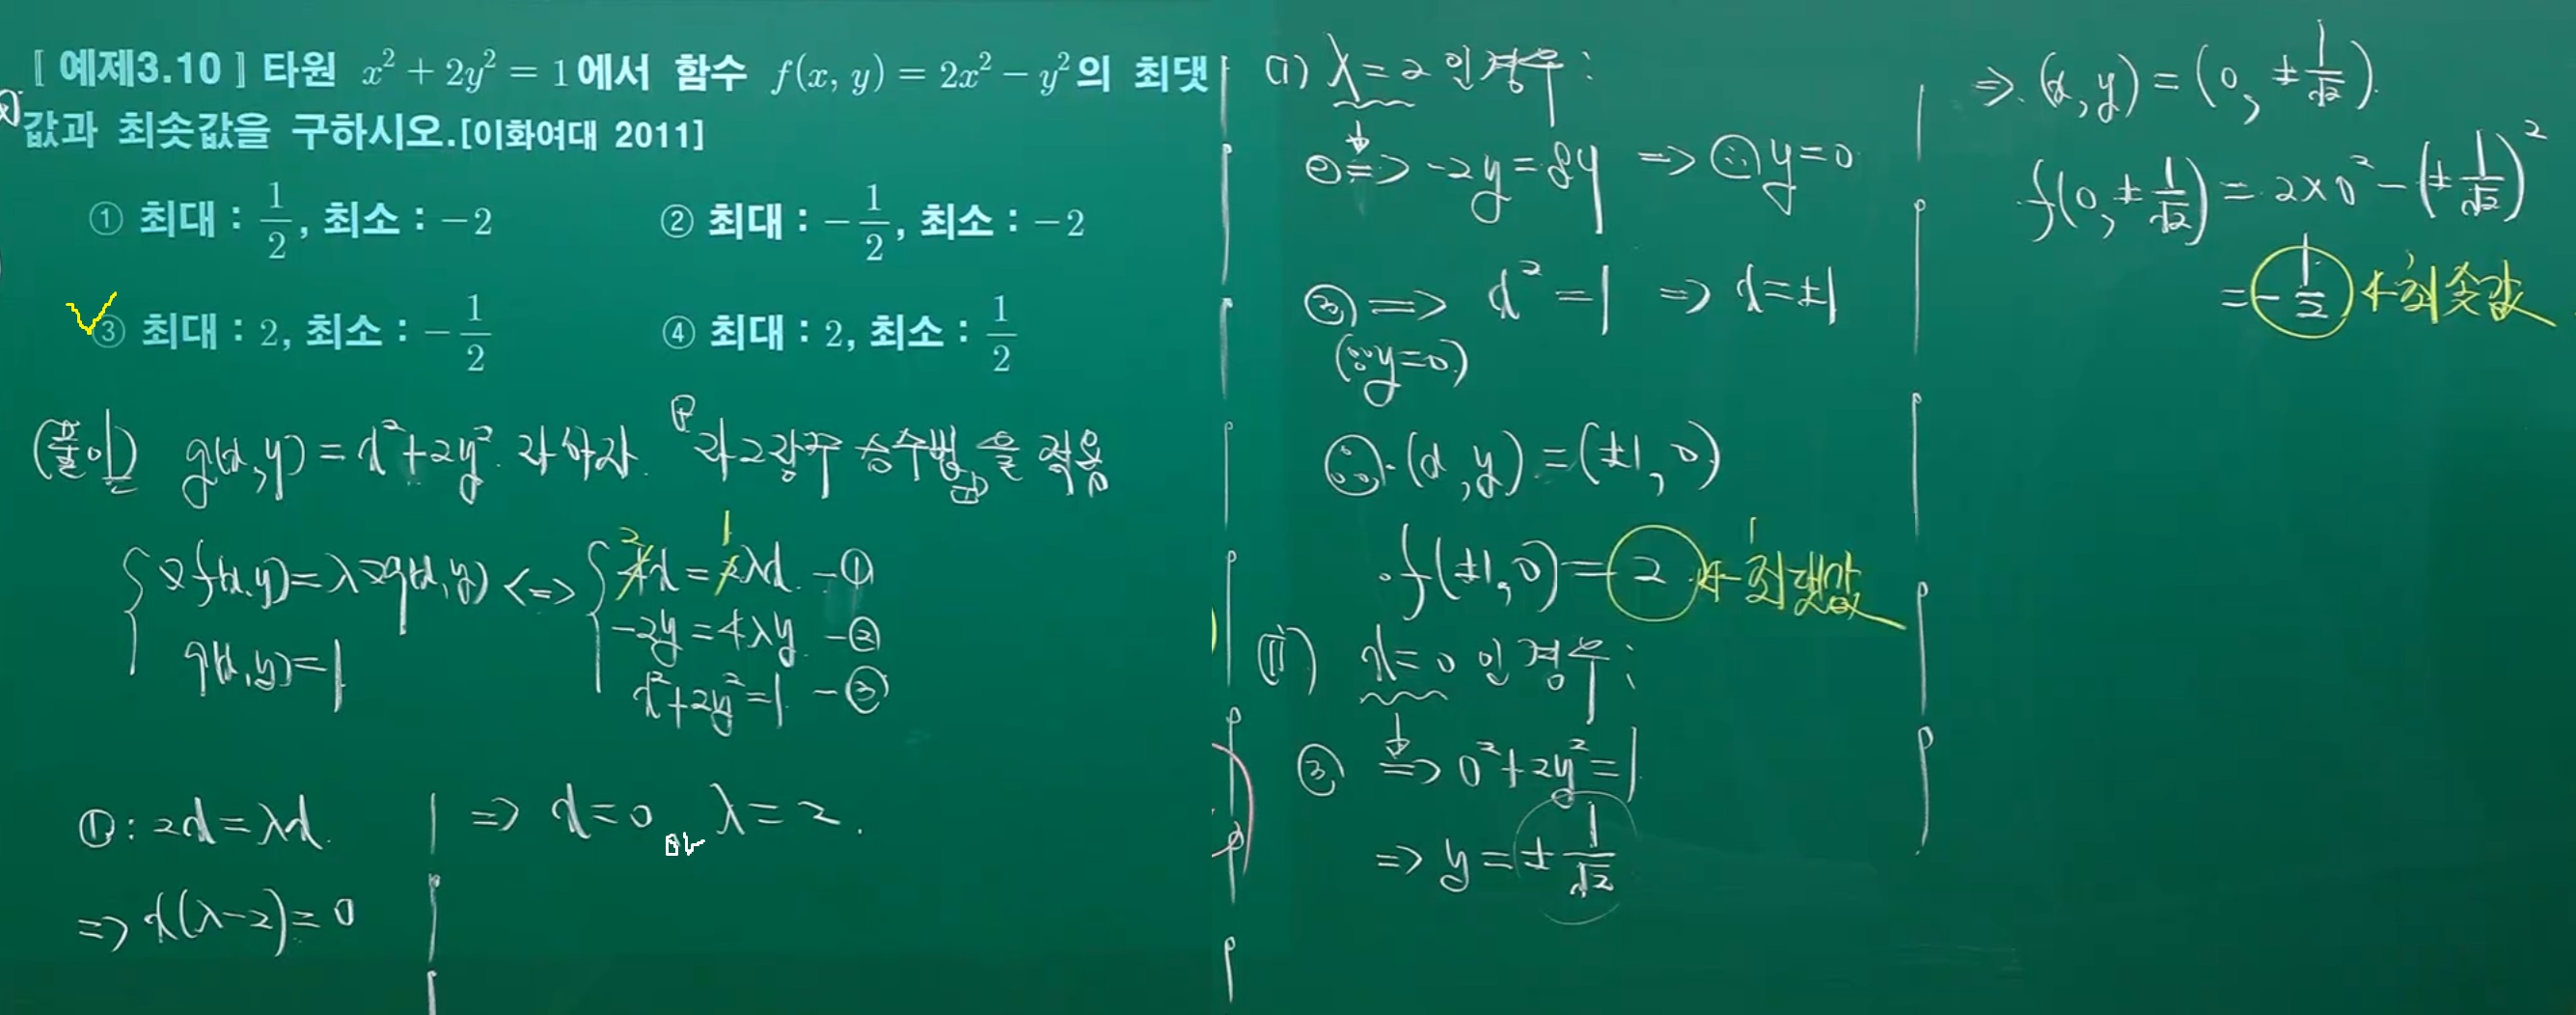 [ 예제3.10 ] 타원 x² + 2y² = 1에서 함수 f(x, y) = 2x² − y²의 최댓
값과 최솟값을 구하시오.[이화여대 2011]
① 최대 : 1/2, 최소 : −2
② 최대 : −1/2, 최소 : −2
③ 최대 : 2, 최소 : −1/2
④ 최대 : 2, 최소 : 1/2
(풀이) g(x,y) = x²+2y² 라 하자. 라그랑주 승수법을 적용
∇f(x,y) = λ∇g(x,y) <=> 2 4x = 1 2λx −①
−2y = 4λy −②
g(x,y) = 1 x²+2y² = 1 −③
① : 2x = λx
=> x(λ−2) = 0
=> x = 0 or λ = 2.
(i) λ = 2 인 경우 :
② => −2y = 8y => ∴ y = 0
③ => x² = 1 => x = ±1
(∵ y = 0)
∴ (x, y) = (±1, 0)
f(±1, 0) = 2 ← 최댓값
(ii) x = 0 인 경우 :
③ => 0²+2y² = 1
=> y = ± 1/√2
=> (x, y) = (0, ± 1/√2)
f(0, ± 1/√2) = 2×0² − (± 1/√2)²
= −1/2 ← 최솟값